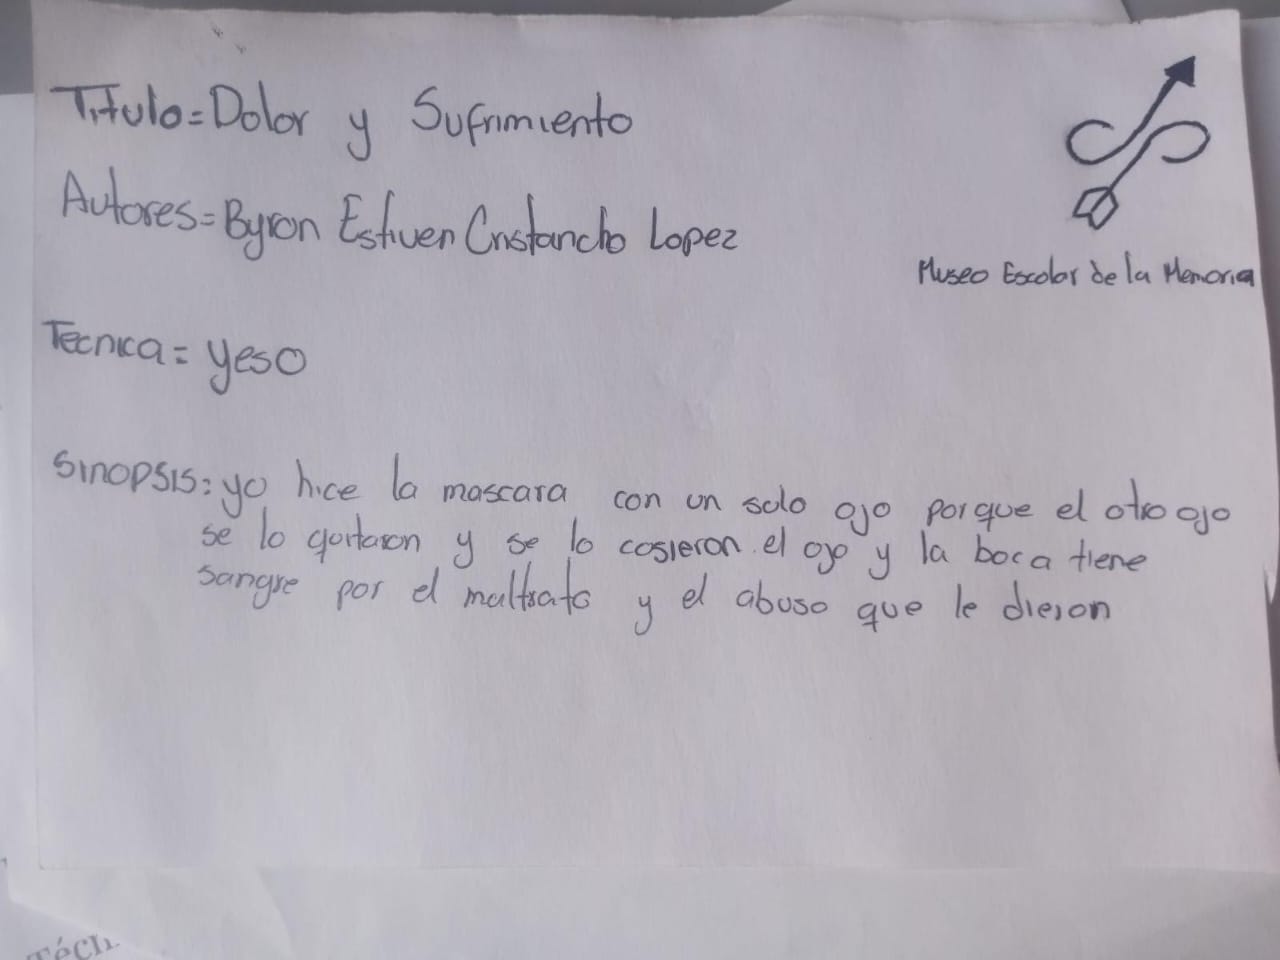 Titulo = Dolor y Sufrimiento
Autores = Byron Estiven Cristancho Lopez
Museo Escolar de la Memoria
Tecnica = yeso
Sinopsis: yo hice la mascara con un solo ojo porque el otro ojo
se lo quitaron y se lo cosieron el ojo y la boca tiene
sangre por el maltrato y el abuso que le dieron
Técn